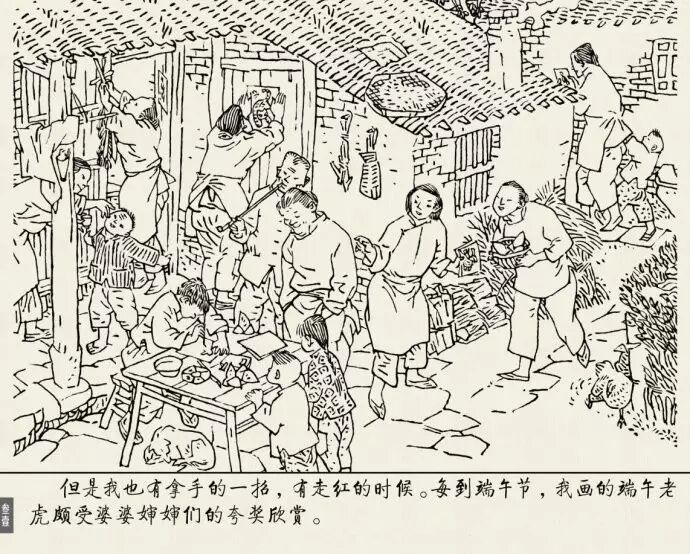 但是我也有拿手的一招，有走红的时候。每到端午节，我画的端午老
虎颇受婆婆婶婶们的夸奖欣赏。
叁壹